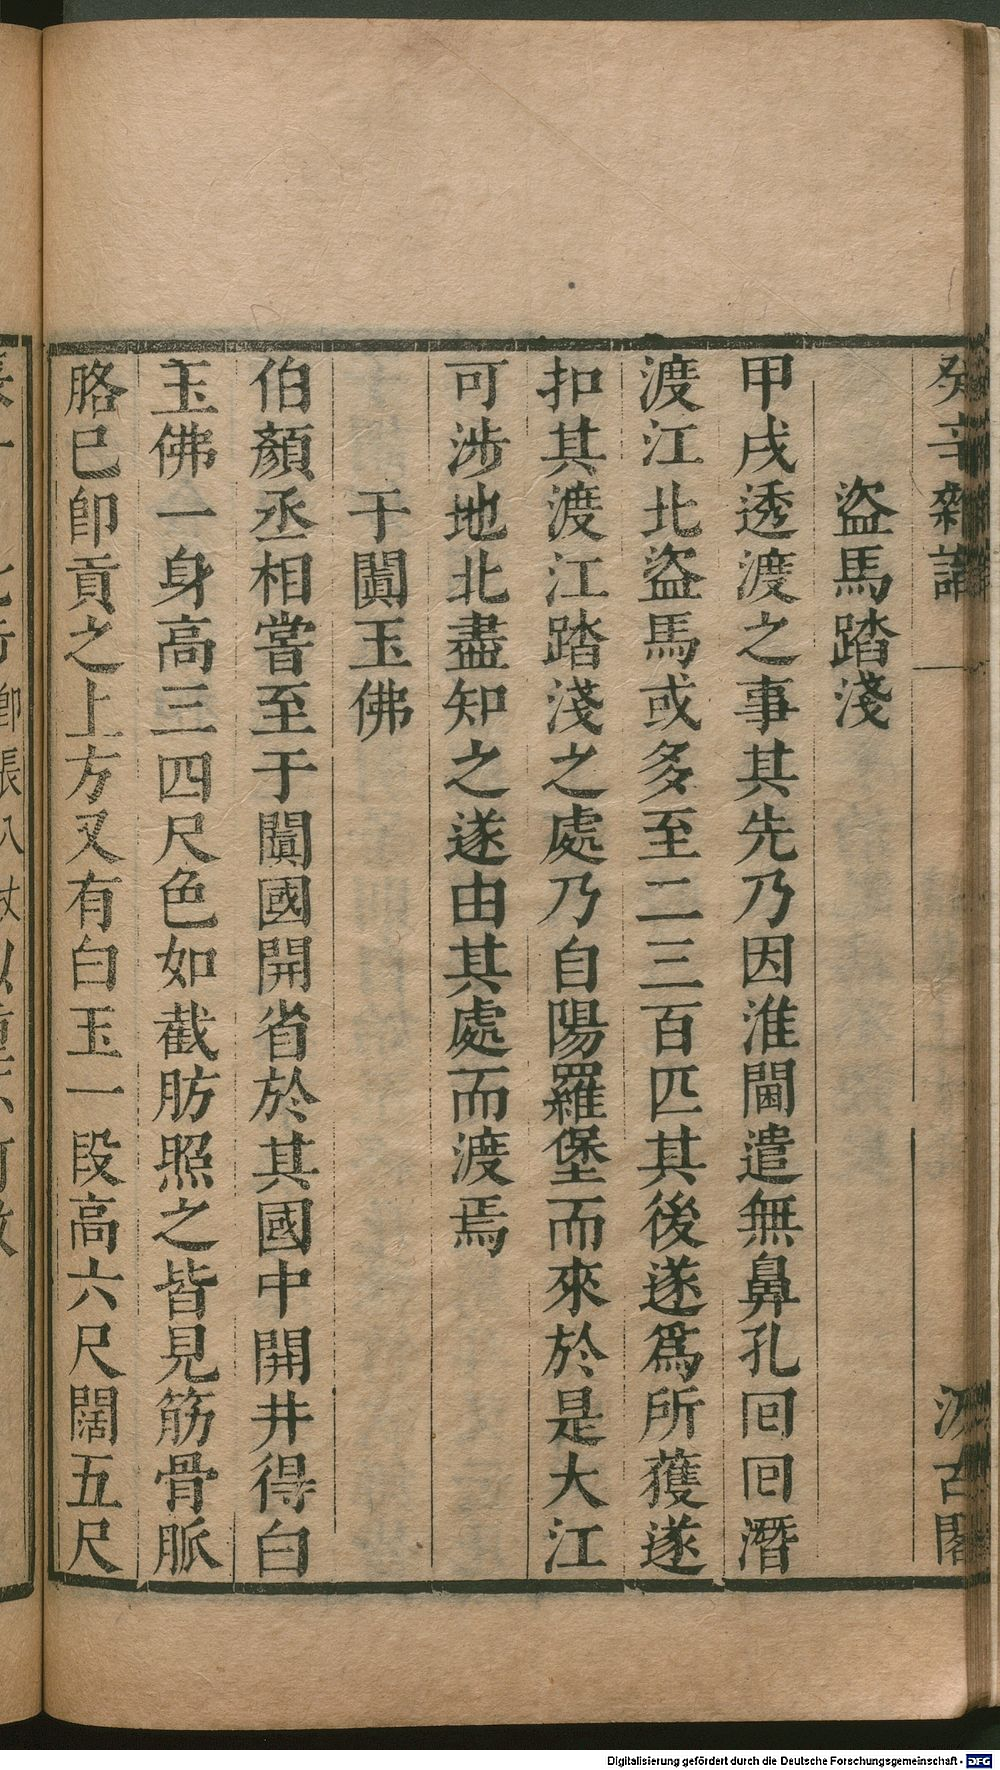 癸辛雜識
汲古閣
盜馬踏淺
甲戌透渡之事其先乃因淮閫遣無鼻孔回回潛
渡江北盜馬或多至二三百匹其後遂爲所獲遂
扣其渡江踏淺之處乃自陽羅堡而來於是大江
可涉地北盡知之遂由其處而渡焉
于闐玉佛
伯顏丞相嘗至于闐國開省於其國中開井得白
玉佛一身高三四尺色如截肪照之皆見筋骨脈
胳已卽貢之上方又有白玉一段高六尺闊五尺
Digitalisierung gefördert durch die Deutsche Forschungsgemeinschaft - DFG